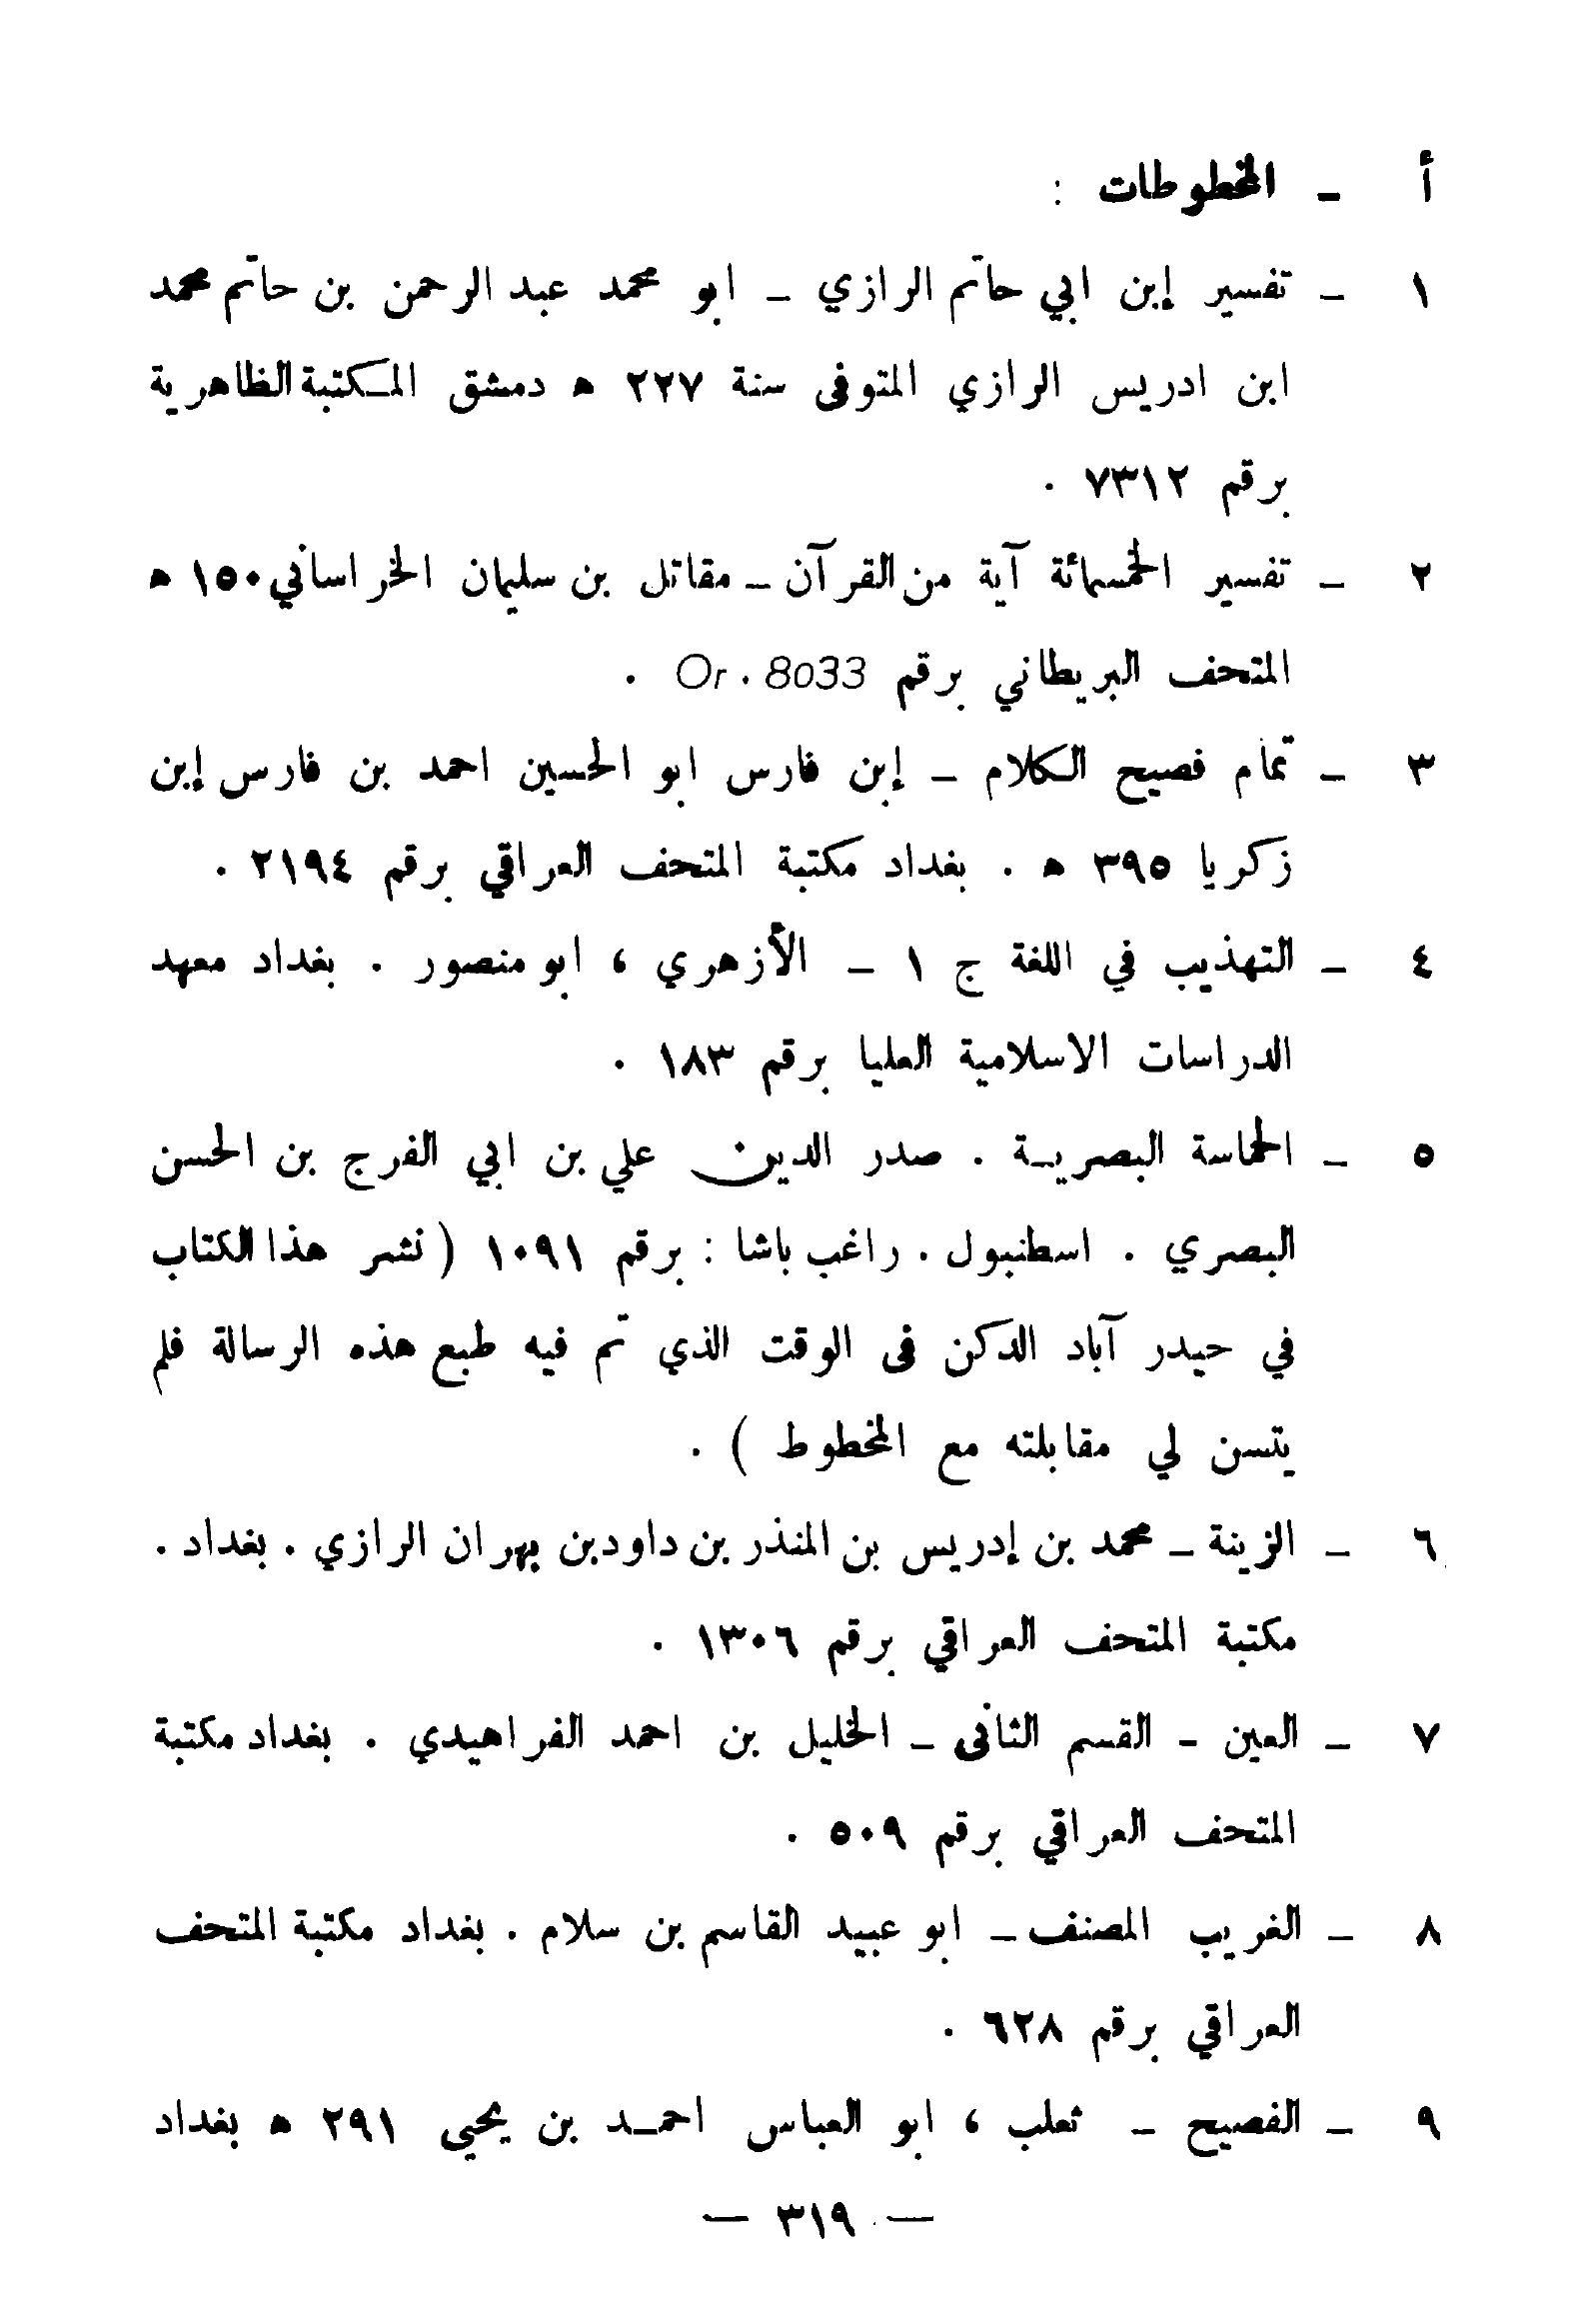 أ ـ المخطوطات :
١ ـ تفسير إبن ابي حاتم الرازي ـ ابو محمد عبد الرحمن بن حاتم محمد
ابن ادريس الرازي المتوفى سنة ٢٢٧ ه دمشق المكتبة الظاهرية
برقم ٧٣١٢ .
٢ ـ تفسير الخمسمائة آية من القرآن ـ مقاتل بن سليمان الخراساني ١٥٠ ه
المتحف البريطاني برقم Or . 8033 .
٣ ـ تمام فصيح الكلام ـ إبن فارس ابو الحسين احمد بن فارس إبن
زكريا ٣٩٥ ه . بغداد مكتبة المتحف العراقي برقم ٢١٩٤ .
٤ ـ التهذيب في اللغة ج ١ ـ الأزهري ، ابو منصور . بغداد معهد
الدراسات الاسلامية العليا برقم ١٨٣ .
٥ ـ الحماسة البصريـة . صدر الدين علي بن ابي الفرج بن الحسن
البصري . اسطنبول . راغب باشا : برقم ١٠٩١ ( نشر هذا الكتاب
في حيدر آباد الدكن فى الوقت الذي تم فيه طبع هذه الرسالة فلم
يتسن لي مقابلته مع المخطوط ) .
٦ ـ الزينة ـ محمد بن إدريس بن المنذر بن داود بن بهران الرازي . بغداد .
مكتبة المتحف العراقي برقم ١٣٠٦ .
٧ ـ العين - القسم الثانى ـ الخليل بن احمد الفراهيدي . بغداد مكتبة
المتحف العراقي برقم ٥٠٩ .
٨ ـ الغريب المصنف ـ ابو عبيد القاسم بن سلام . بغداد مكتبة المتحف
العراقي برقم ٦٢٨ .
٩ ـ الفصيح ـ ثعلب ، ابو العباس احمـد بن يحيى ٢٩١ ه بغداد
— ٣١٩ —